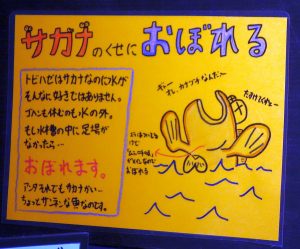 サカナのくせにおぼれる
トビハゼはサカナなのに水が
そんなに好きではありません。
ゴハンも休むのも水の外。
もし水槽の中に足場が
なかったら…
おぼれます。
アンタそれでもサカナかい…
ちょっとザンネンな魚なのです。
オレ、カナヅチなんだ〜
たすけてくれ〜
おぼれる